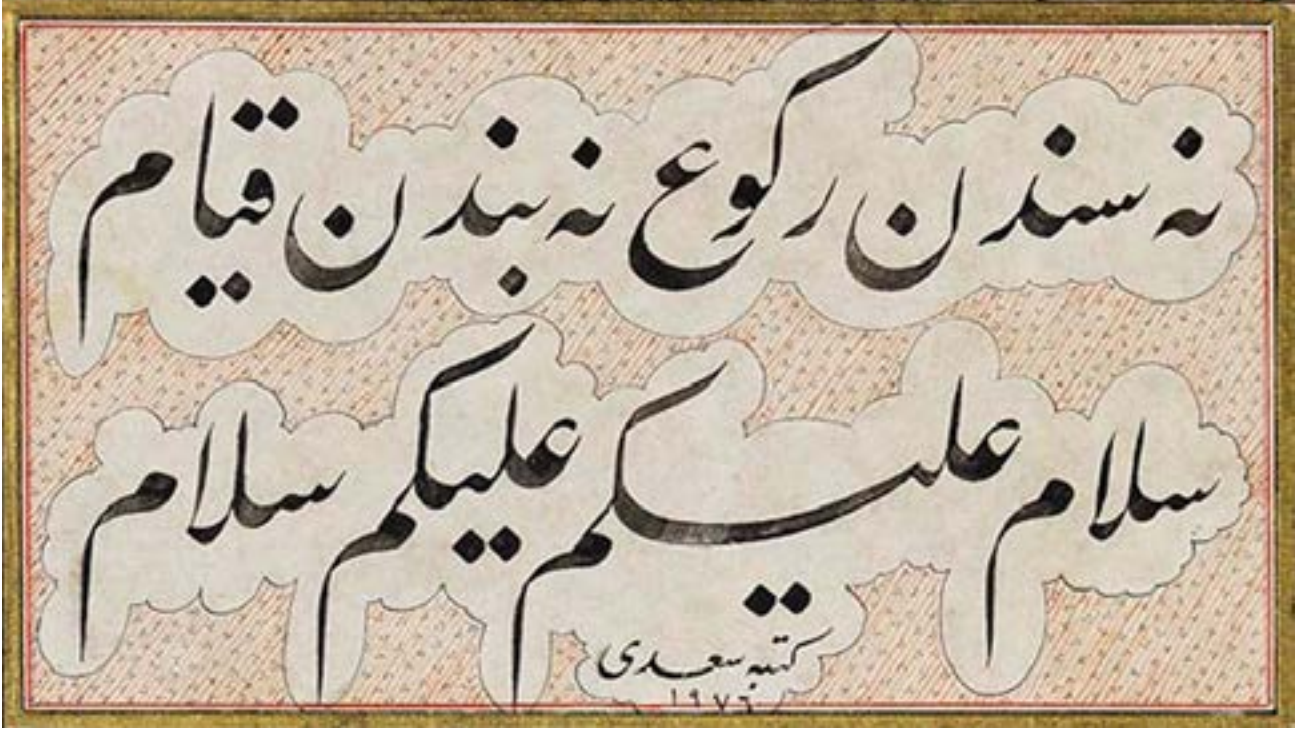 نه سندن ركوع نه بندن قيام
سلام عليكم عليكم سلام
كتبه سعدى
١٩٧٦